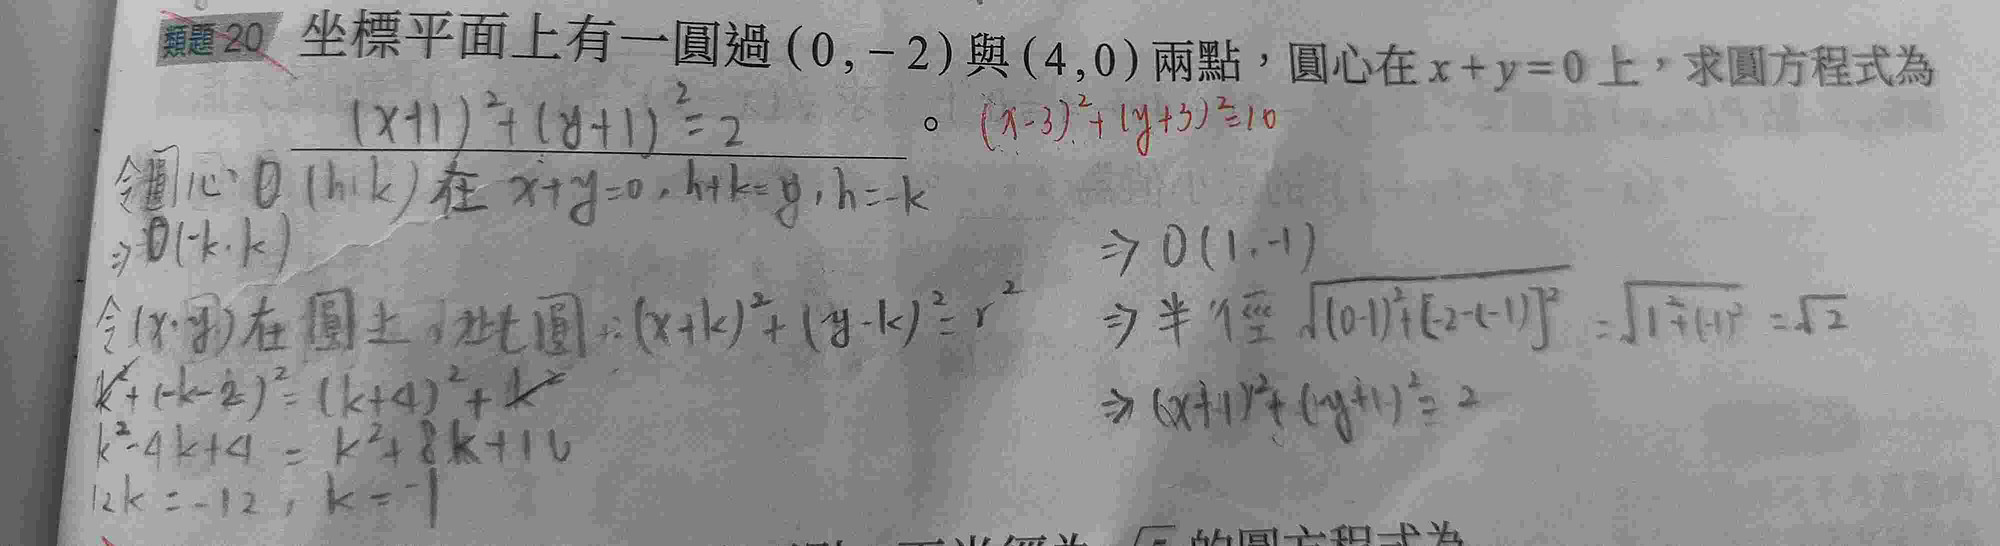 類題 20 坐標平面上有一圓過 (0,-2) 與 (4,0) 兩點，圓心在 x+y=0 上，求圓方程式為
(x+1)²+(y+1)²=2 。 (x-3)²+(y+3)²=10
令圓心 O (h,k) 在 x+y=0, h+k=y, h=-k
⇒ O(-k,k)
令(x,y)在圓上, 圓: (x+k)²+(y-k)²=r²
k²+(-k-2)²=(k+4)²+k²
k²-4k+4 = k²+8k+16
12k=-12, k=-1
⇒ O(1,-1)
⇒ 半徑 √(0-1)²+[-2-(-1)]² = √1²+(-1)² = √2
⇒ (x+1)²+(y+1)²=2
的圓方程式為